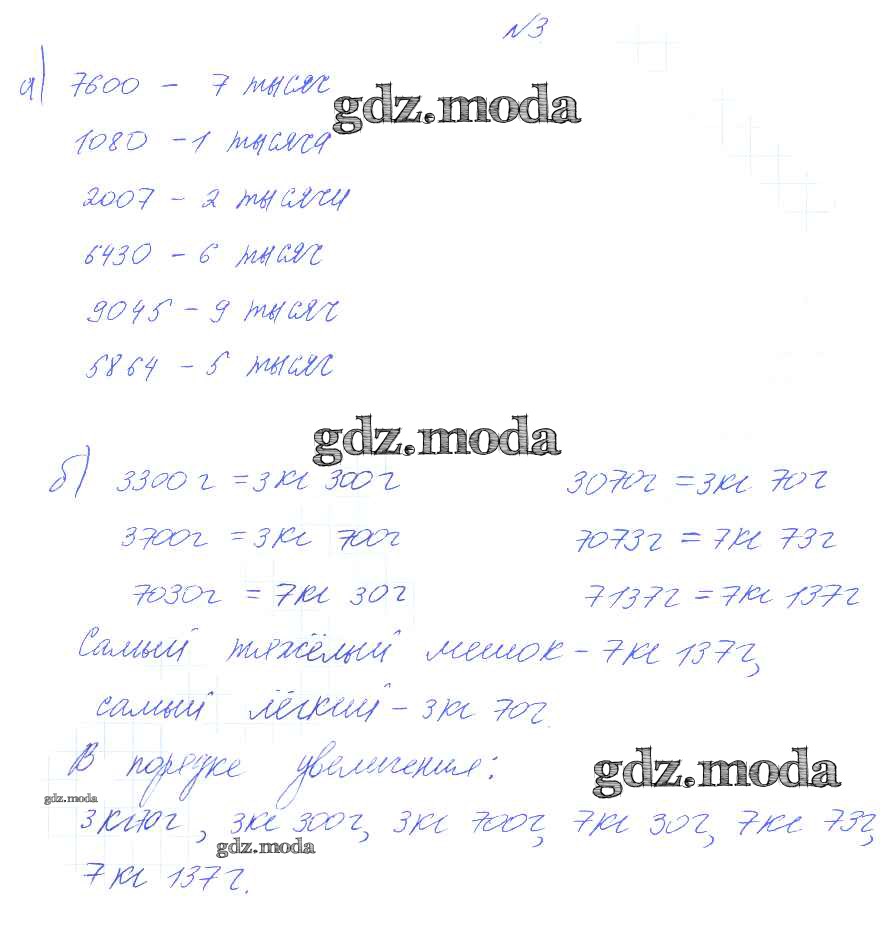 №3
а) 7600 - 7 тысяч
gdz.moda
1080 - 1 тысяча
2007 - 2 тысячи
6430 - 6 тысяч
9045 - 9 тысяч
5864 - 5 тысяч
gdz.moda
б) 3300г = 3кг 300г 3070г = 3кг 70г
3700г = 3кг 700г 7073г = 7кг 73г
7030г = 7кг 30г 7137г = 7кг 137г
Самый тяжёлый мешок - 7кг 137г,
самый лёгкий - 3кг 70г.
В порядке увеличения:
gdz.moda
gdz.moda
3кг70г, 3кг 300г, 3кг 700г, 7кг 30г, 7кг 73г,
gdz.moda
7кг 137г.